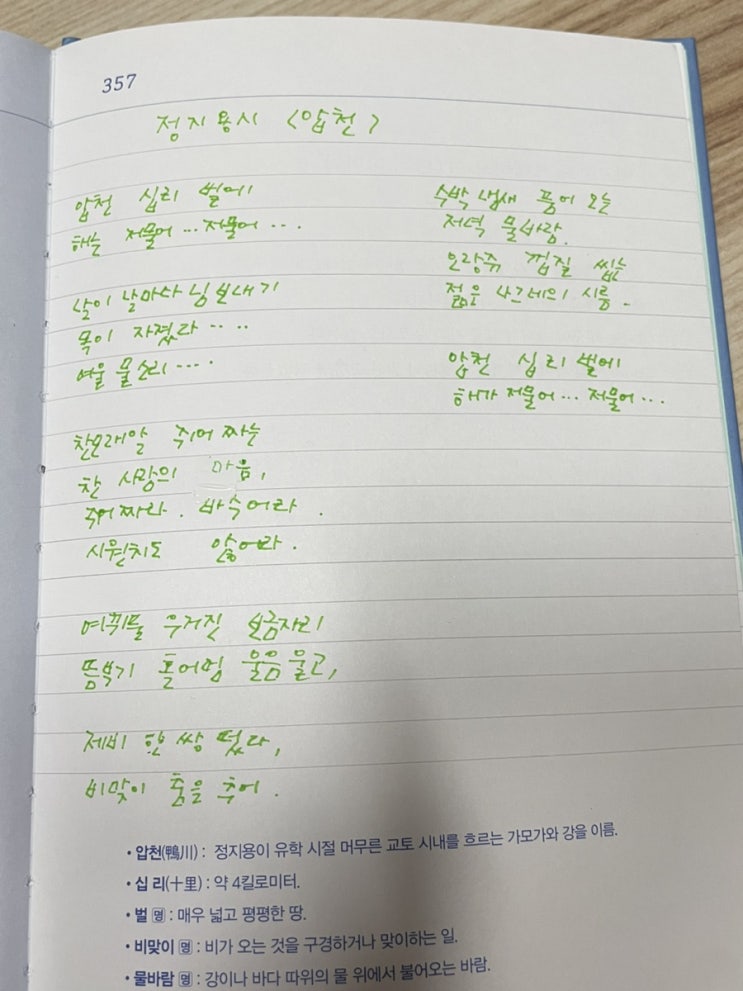 357
정지용시 〈압천〉
압천 십리 벌에
해는 저물어 ... 저물어 ...
날이 날마다 님 보내기
목이 자졌다 ....
여울 물소리 ....
찬 모래알 쥐어 짜는
찬 사람의 마음,
쥐어 짜라. 바수어라.
시원치도 않어라.
여뀌풀 우거진 보금자리
뜸부기 홀어멈 울음 울고,
제비 한 쌍 떴다,
비맞이 춤을 추어.
수박 냄새 품어 오는
저녁 물바람.
오랑쥬 껍질 씹는
젊은 나그네의 시름.
압천 십리 벌에
해가 저물어... 저물어...
• 압천(鴨川) : 정지용이 유학 시절 머무른 교토 시내를 흐르는 가모가와 강을 이름.
• 십 리(十里) : 약 4킬로미터.
• 벌 명 : 매우 넓고 평평한 땅.
• 비맞이 명 : 비가 오는 것을 구경하거나 맞이하는 일.
• 물바람 명 : 강이나 바다 따위의 물 위에서 불어오는 바람.